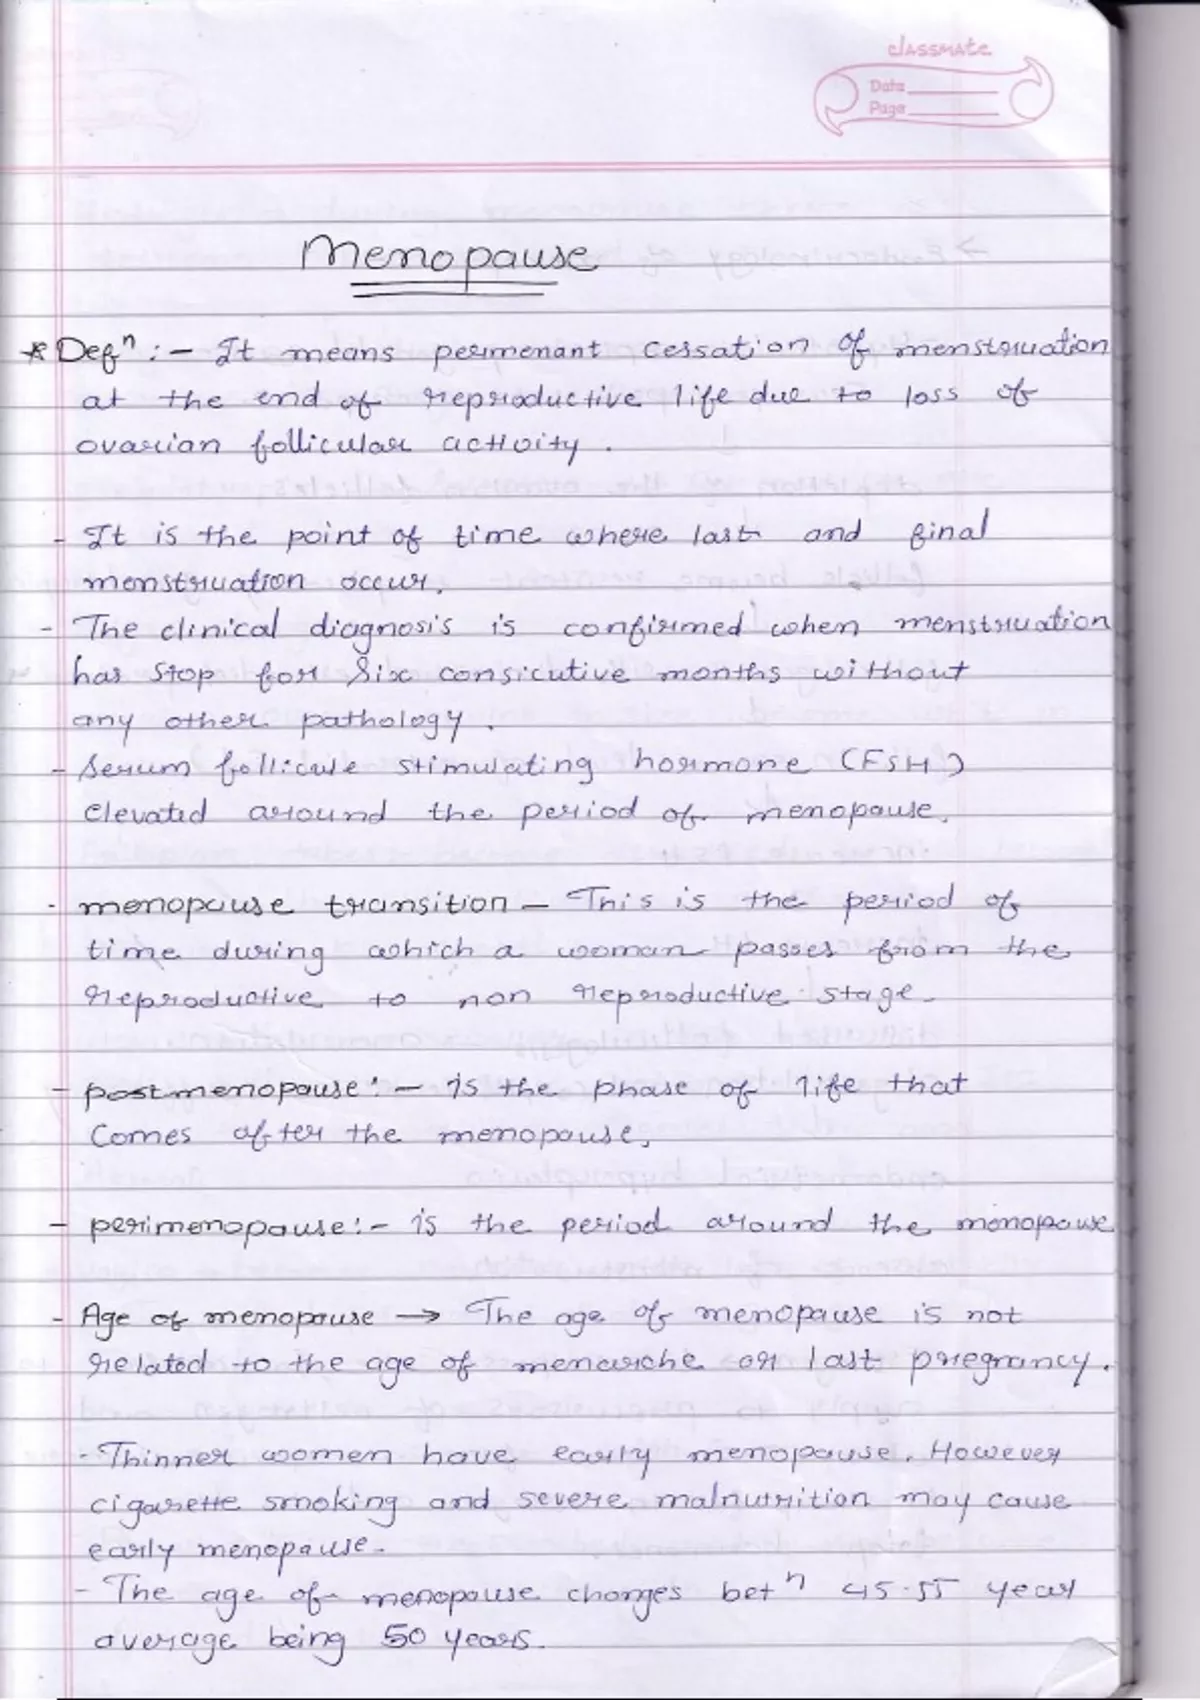 classmate
Date
Page
Menopause
* Defⁿ :- It means permenant cessation of menstruation
at the end of reproductive life due to loss of
ovarian follicular activity.
- It is the point of time where last and final
menstruation occur.
- The clinical diagnosis is confirmed when menstruation
has stop for six consicutive months without
any other pathology.
- Serum follicule stimulating hormone (FSH)
elevated around the period of menopause.
- menopause transition - This is the period of
time during which a woman passes from the
reproductive to non reproductive stage.
- postmenopause :- is the phase of life that
comes after the menopause.
- perimenopause :- is the period around the menopause
- Age of menopause → The age of menopause is not
related to the age of menarche or last pregnancy.
- Thinner women have early menopause. However
cigarette smoking and severe malnutrition may cause
early menopause.
- The age of menopause changes betⁿ 45-55 year
average being 50 years.